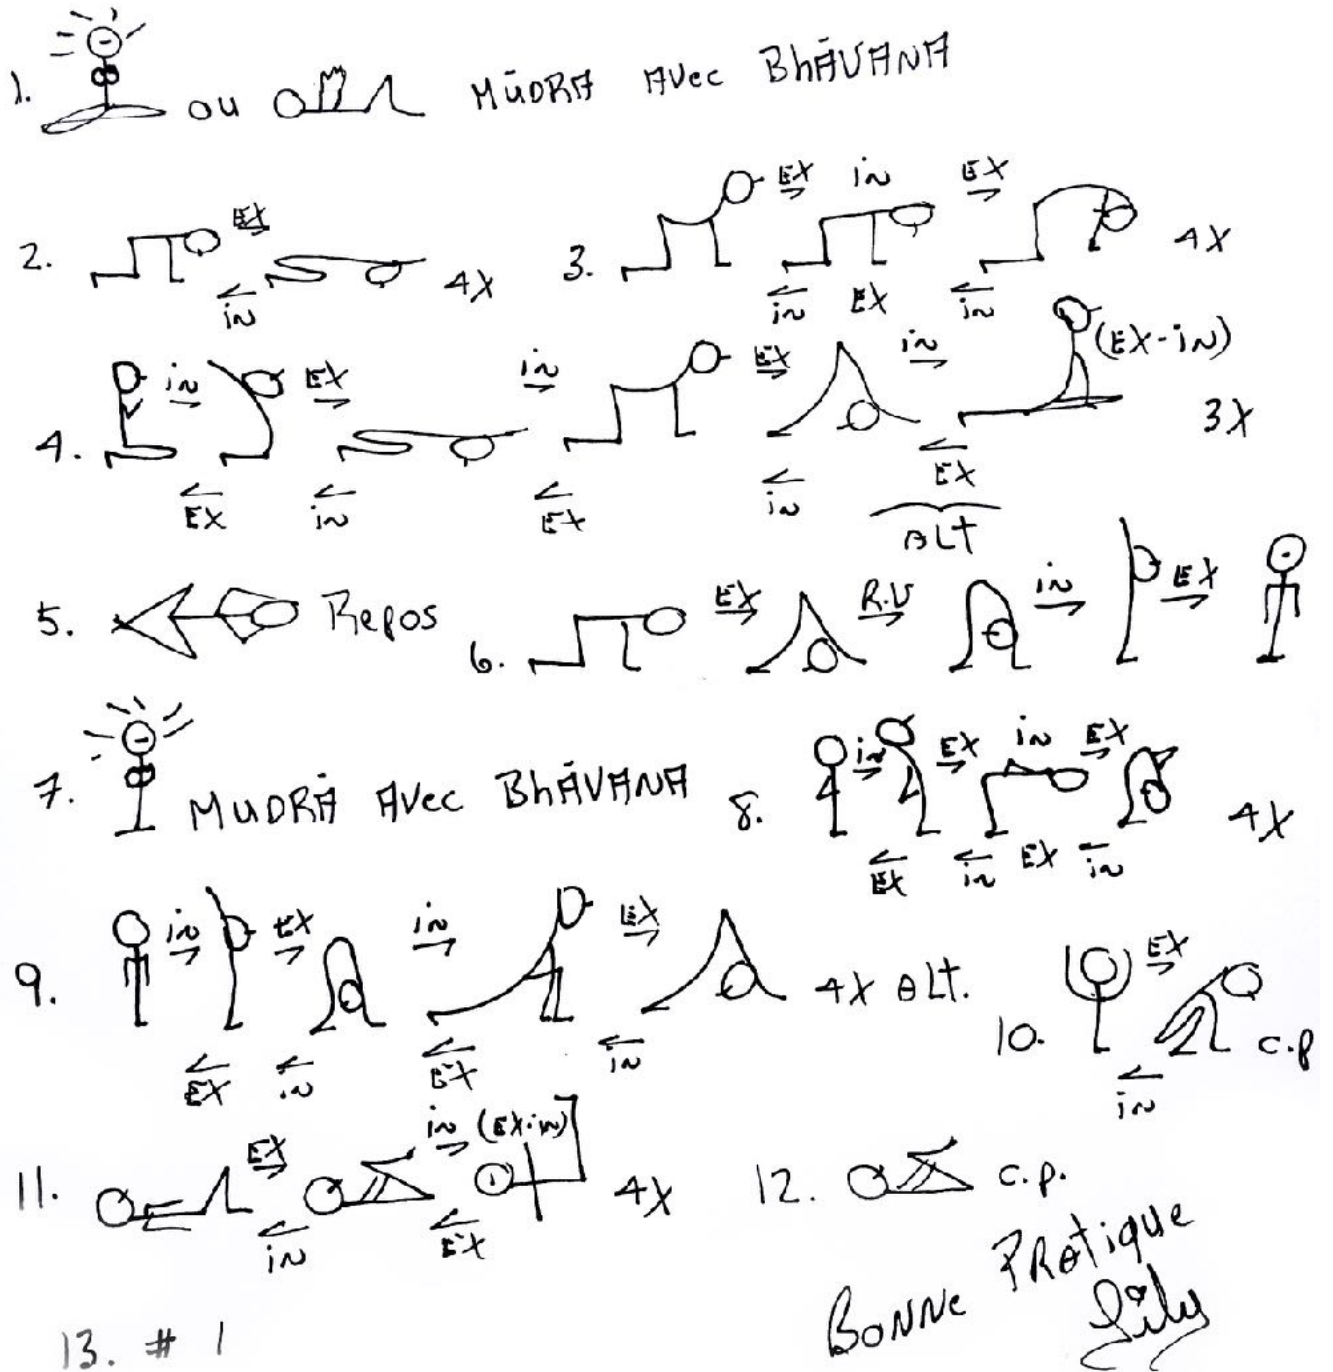 1. ou MŪDRĀ AVec BhĀVANA
2. EX in 4X
3. EX in EX in EX in 4X
4. in EX in EX in (EX-iN) 3X
EX in EX in EX
ALT
5. Repos
6. EX R.V in EX
7. MUDRĀ AVec BhĀVANA
8. in EX in EX 4X
EX in EX in
9. in EX in EX 4X ALT.
EX in EX in
10. EX in c.p
11. EX in (EX-in) 4X
in EX
12. c.p.
BONNe PRAtique
Lily
13. # 1